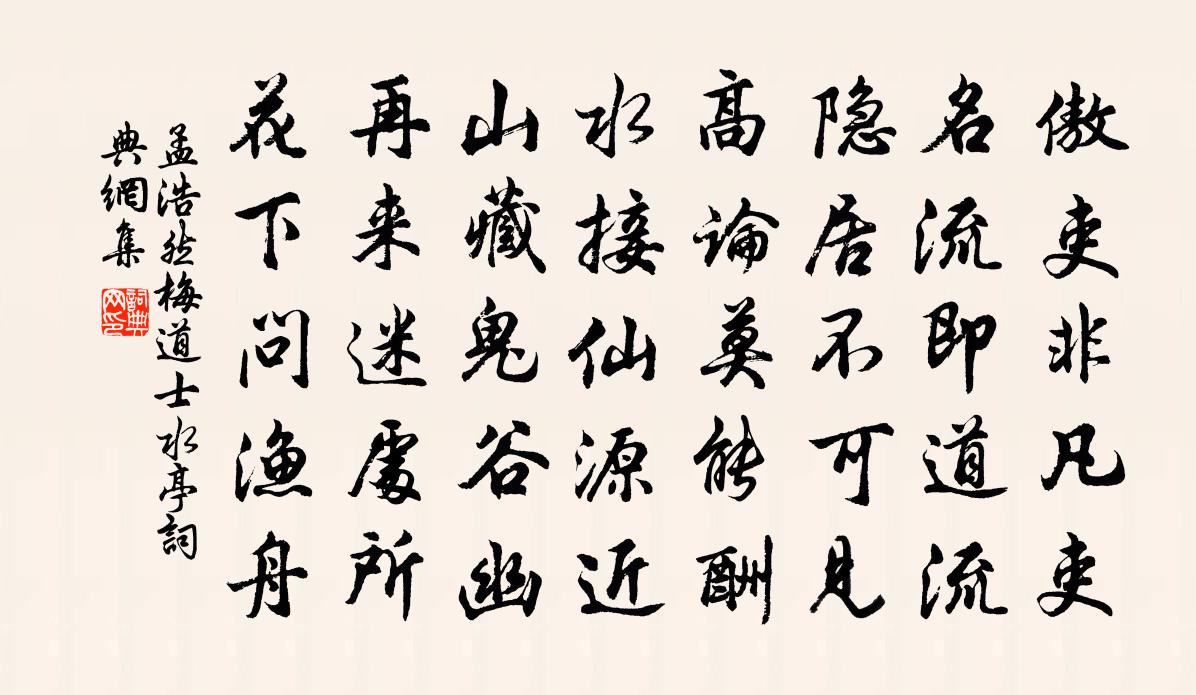 傲吏非凡吏
名流即道流
隐居不可見
高論莫能酬
水接仙源近
山藏鬼谷幽
再来迷處所
花下問漁舟
孟浩然梅道士水亭詞
典網集
詞典网印